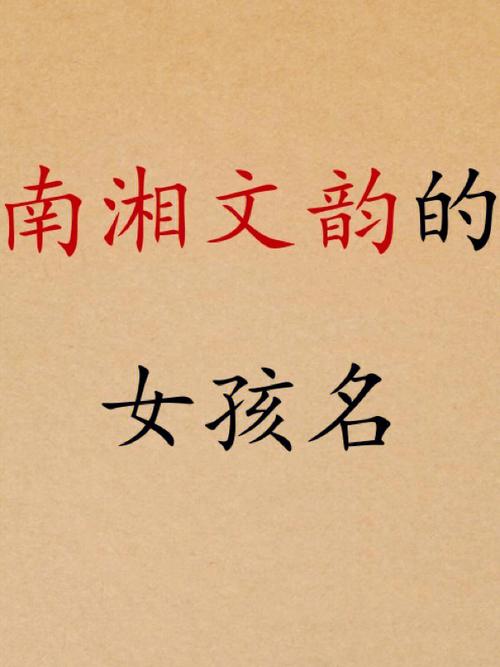 南湘文韵的
女孩名